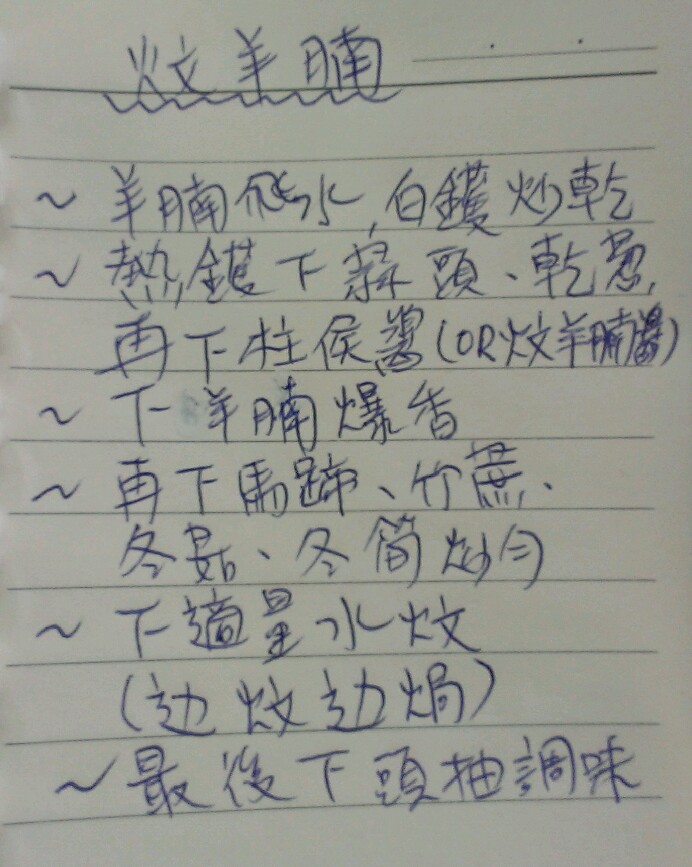 炆羊腩
~ 羊腩飛水,白鑊炒乾
~ 熱鑊下蒜頭、乾葱,
再下柱侯醬(OR炆羊腩醬)
~ 下羊腩爆香
~ 再下馬蹄、竹蔗、
冬菇、冬筒炒勻
~ 下適量水炆
(边炆边焗)
~ 最後下頭抽調味